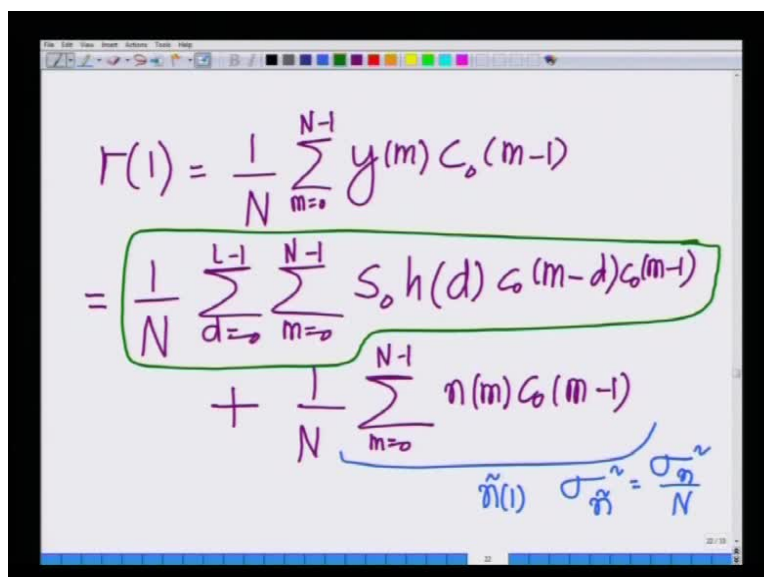 File Edit View Insert Actions Tools Help
r(1) = 1/N ∑_{m=0}^{N-1} y(m) C₀(m-1)
= 1/N ∑_{d=0}^{L-1} ∑_{m=0}^{N-1} S₀ h(d) c₀(m-d) c₀(m-1)
+ 1/N ∑_{m=0}^{N-1} n(m) C₀(m-1)
ñ(1) σ_ñ² = σ_n²/N
22